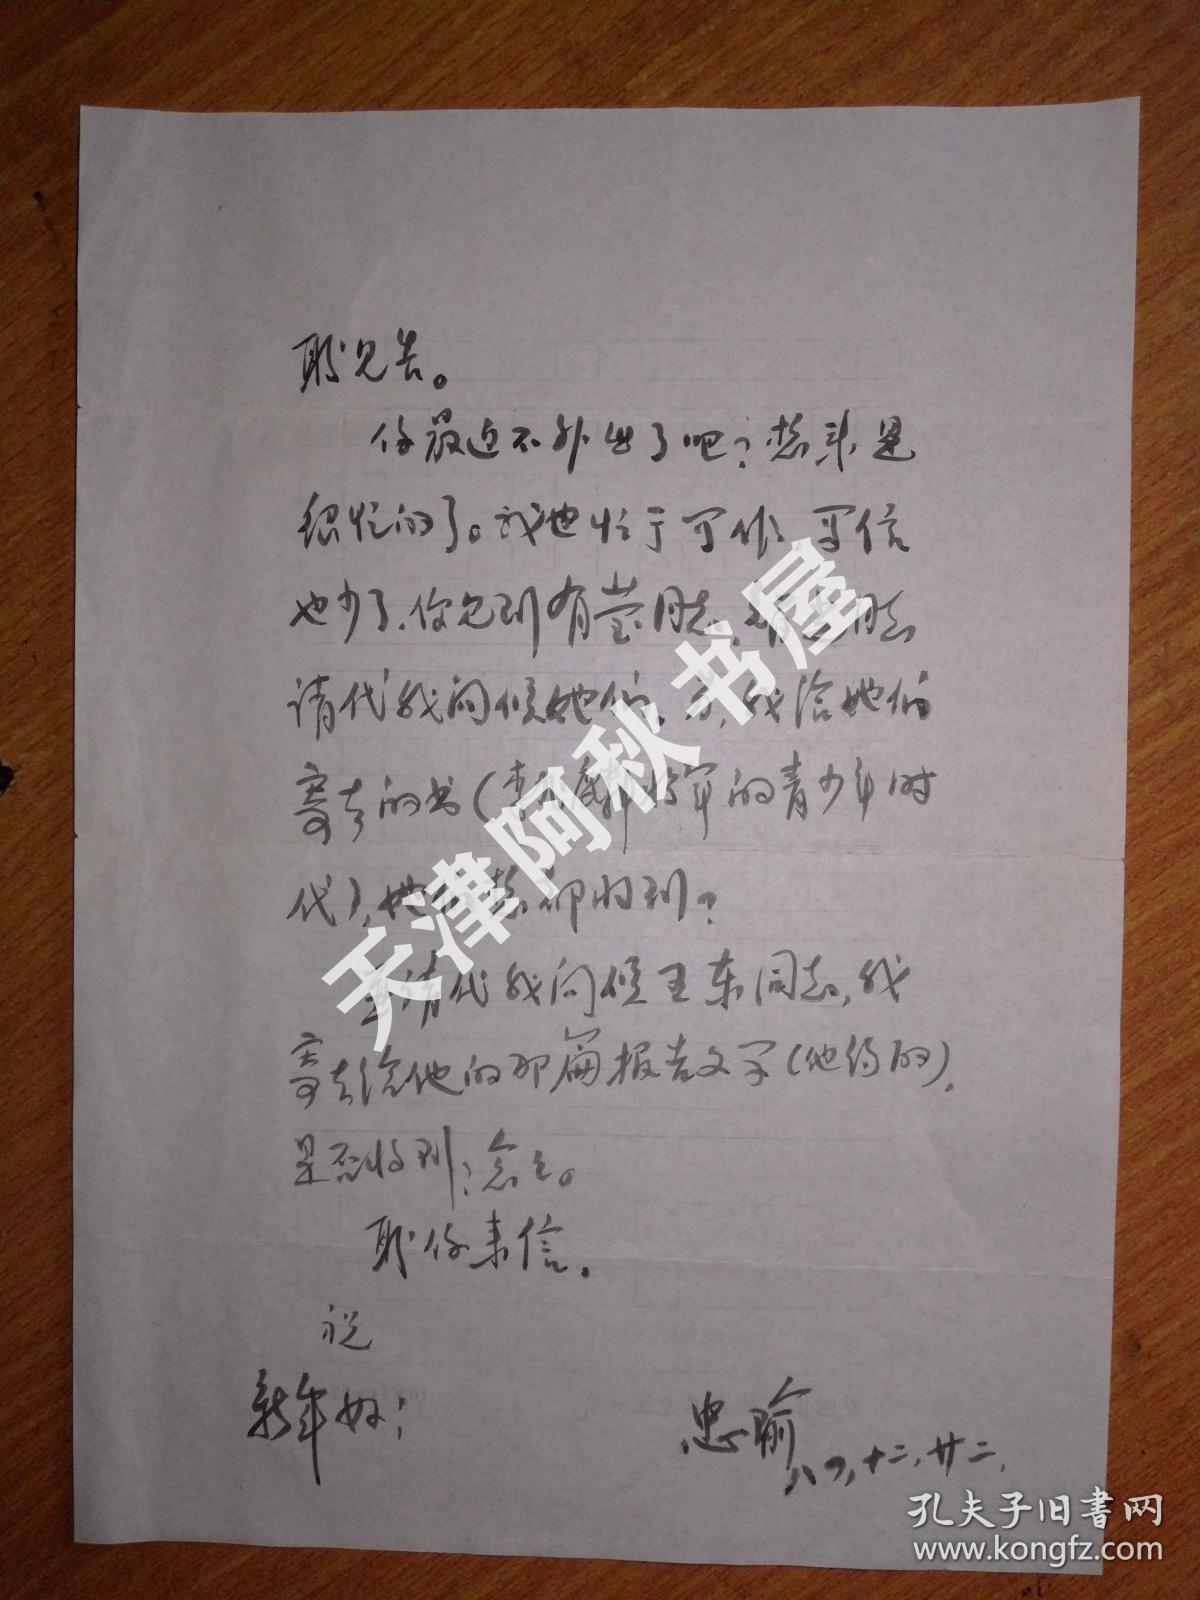 盼见告。
你最近不外出了吧？想来是
很忙的了。我也忙于写作，写信
也少了。你见到有莹同志、同志
请代我问候她们。我给她们
寄去的书（将军的青少年时
代），她都收到？
请代我问候王东同志，我
寄去给他的那篇报告文学（他约的），
是否收到？念之。
盼你来信。
祝
新年好！
忠瑜
八四，十二，廿二，
天津阿秋书屋
孔夫子旧书网
www.kongfz.com